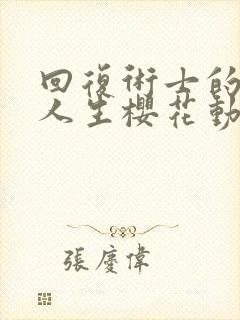 回復術士的
人生櫻花動
張慶偉